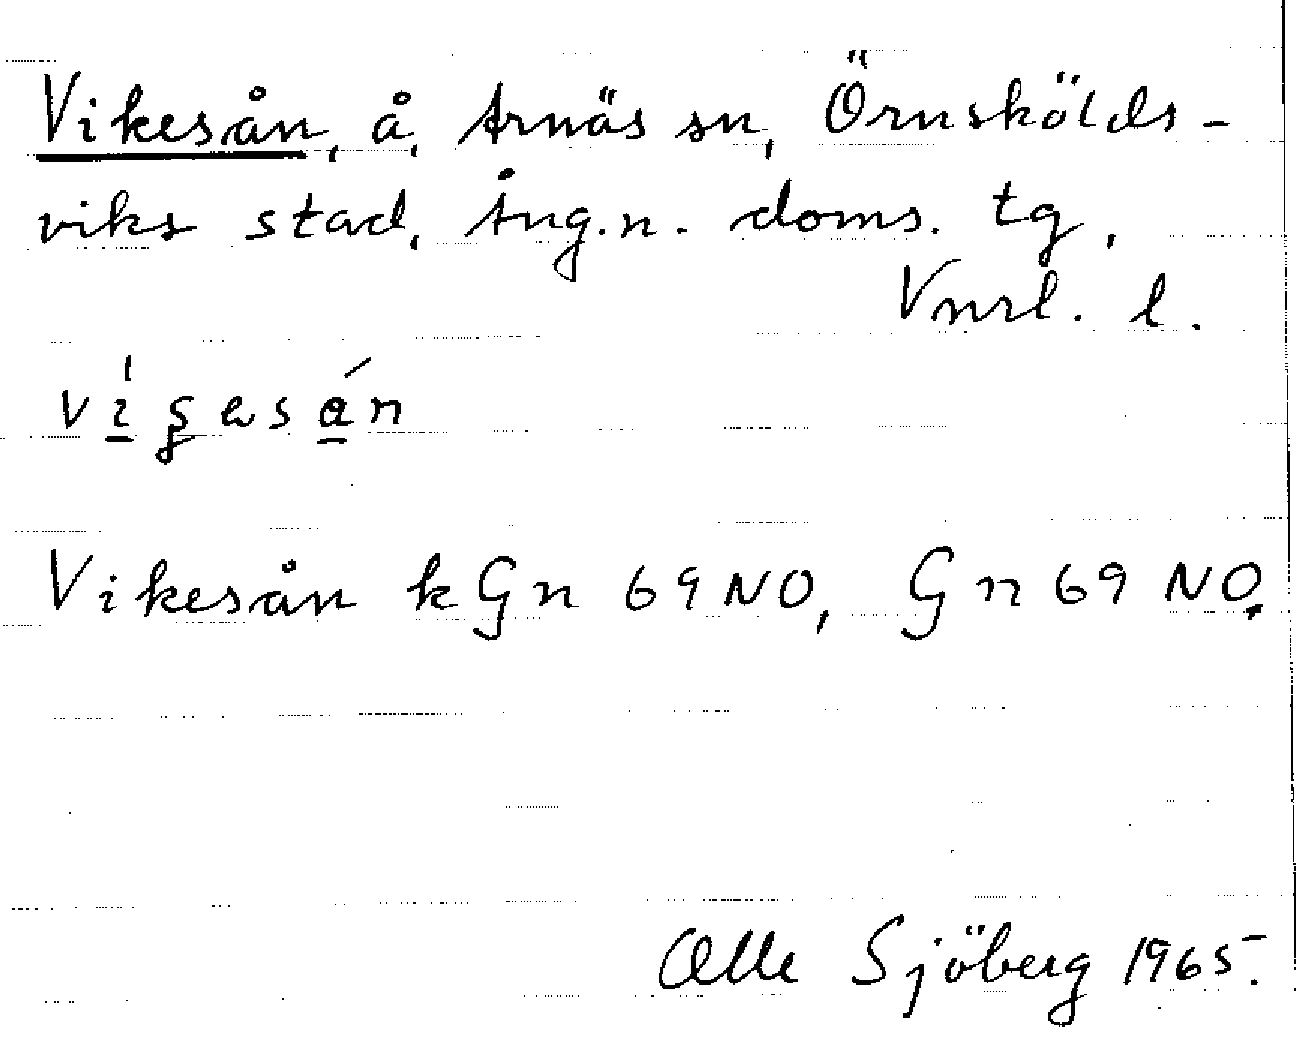 Vikesån, å, Arnäs sn, Örnskölds-
viks stad, Ång.n. doms. tg,
Vnrl. l.
Vikesån kGn 69 NO, Gn 69 NO.
Olle Sjöberg 1965.